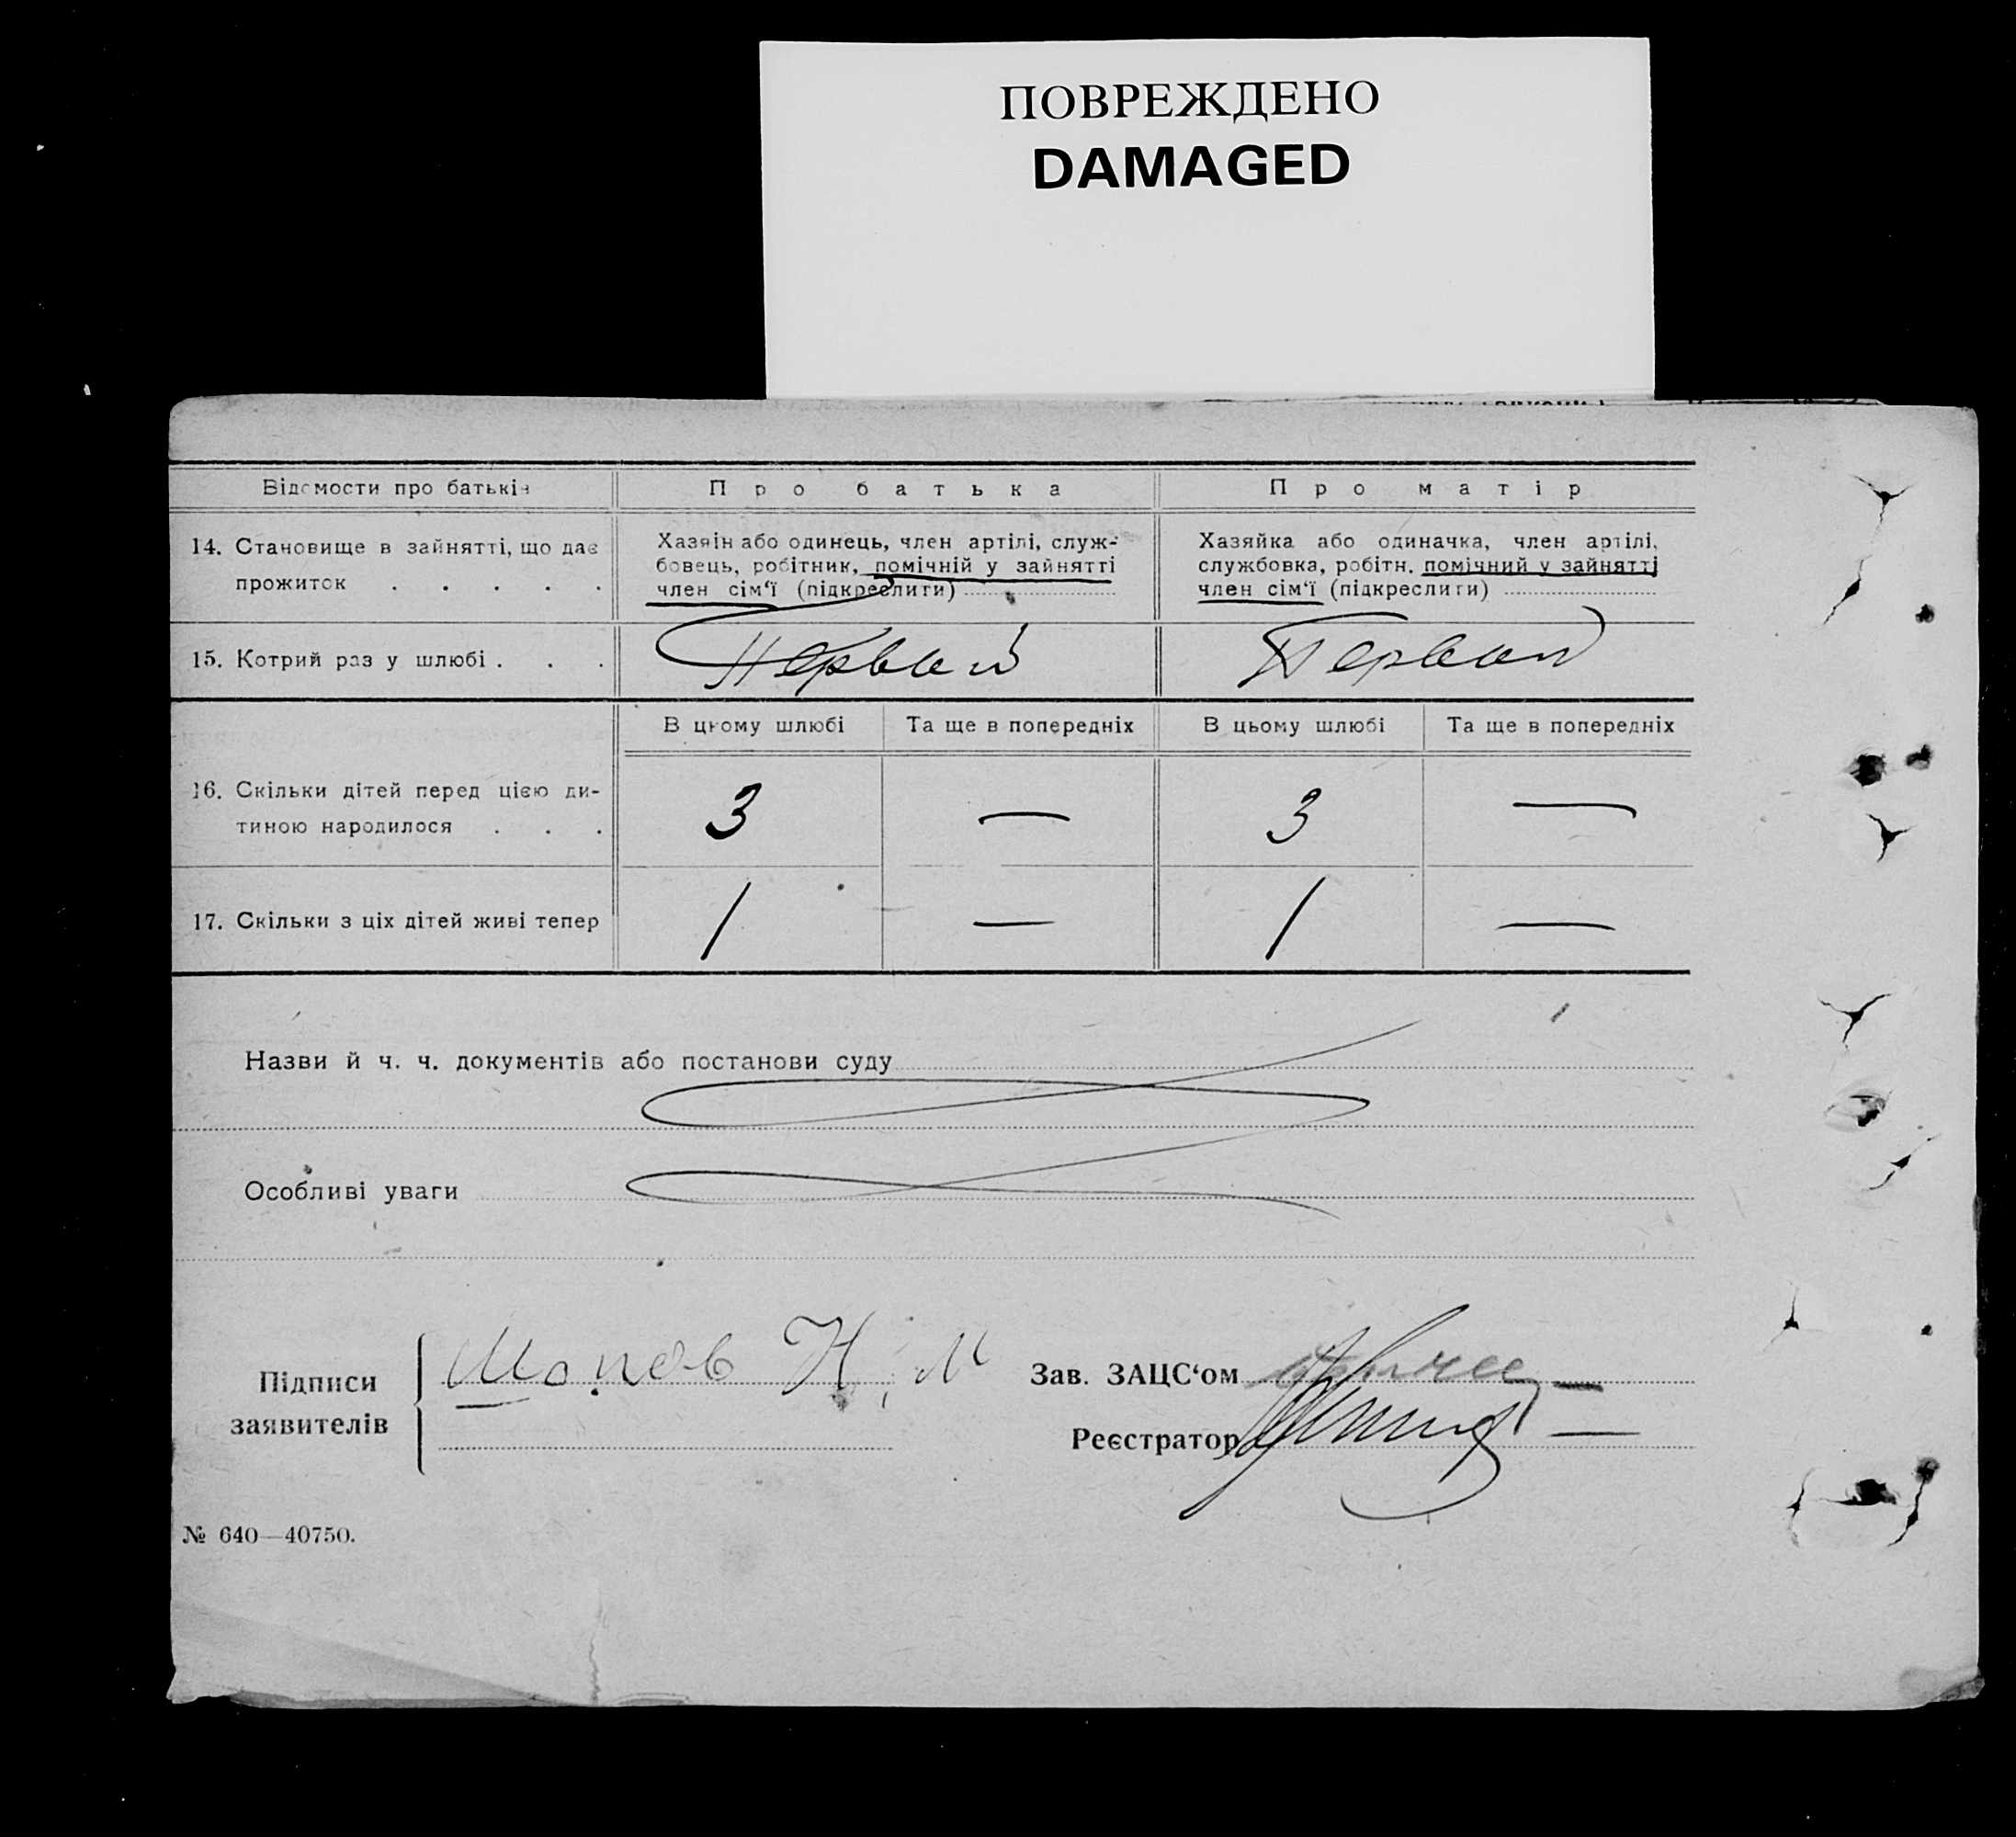 ПОВРЕЖДЕНО
DAMAGED
Відомости про батьків
Про батька
Про матір
14. Становище в зайнятті, що дає
прожиток . . . . .
Хазяїн або одинець, член артілі, служ-
бовець, робітник, помічній у зайнятті
член сім‘ї (підкреслити)
Хазяйка або одиначка, член артілі,
службовка, робітн. помічний у зайнятті
член сім‘ї (підкреслити)
15. Котрий раз у шлюбі . . .
Первый
Первый
В цьому шлюбі
Та ще в попередніх
В цьому шлюбі
Та ще в попередніх
16. Скільки дітей перед цією ди-
тиною народилося . . .
3
—
3
—
17. Скільки з ціх дітей живі тепер
1
—
1
—
Назви й ч. ч. документів або постанови суду
Особливі уваги
Підписи
заявителів
Шопов Н. М
Зав. ЗАЦС‘ом
Реєстратор
№ 640—40750.